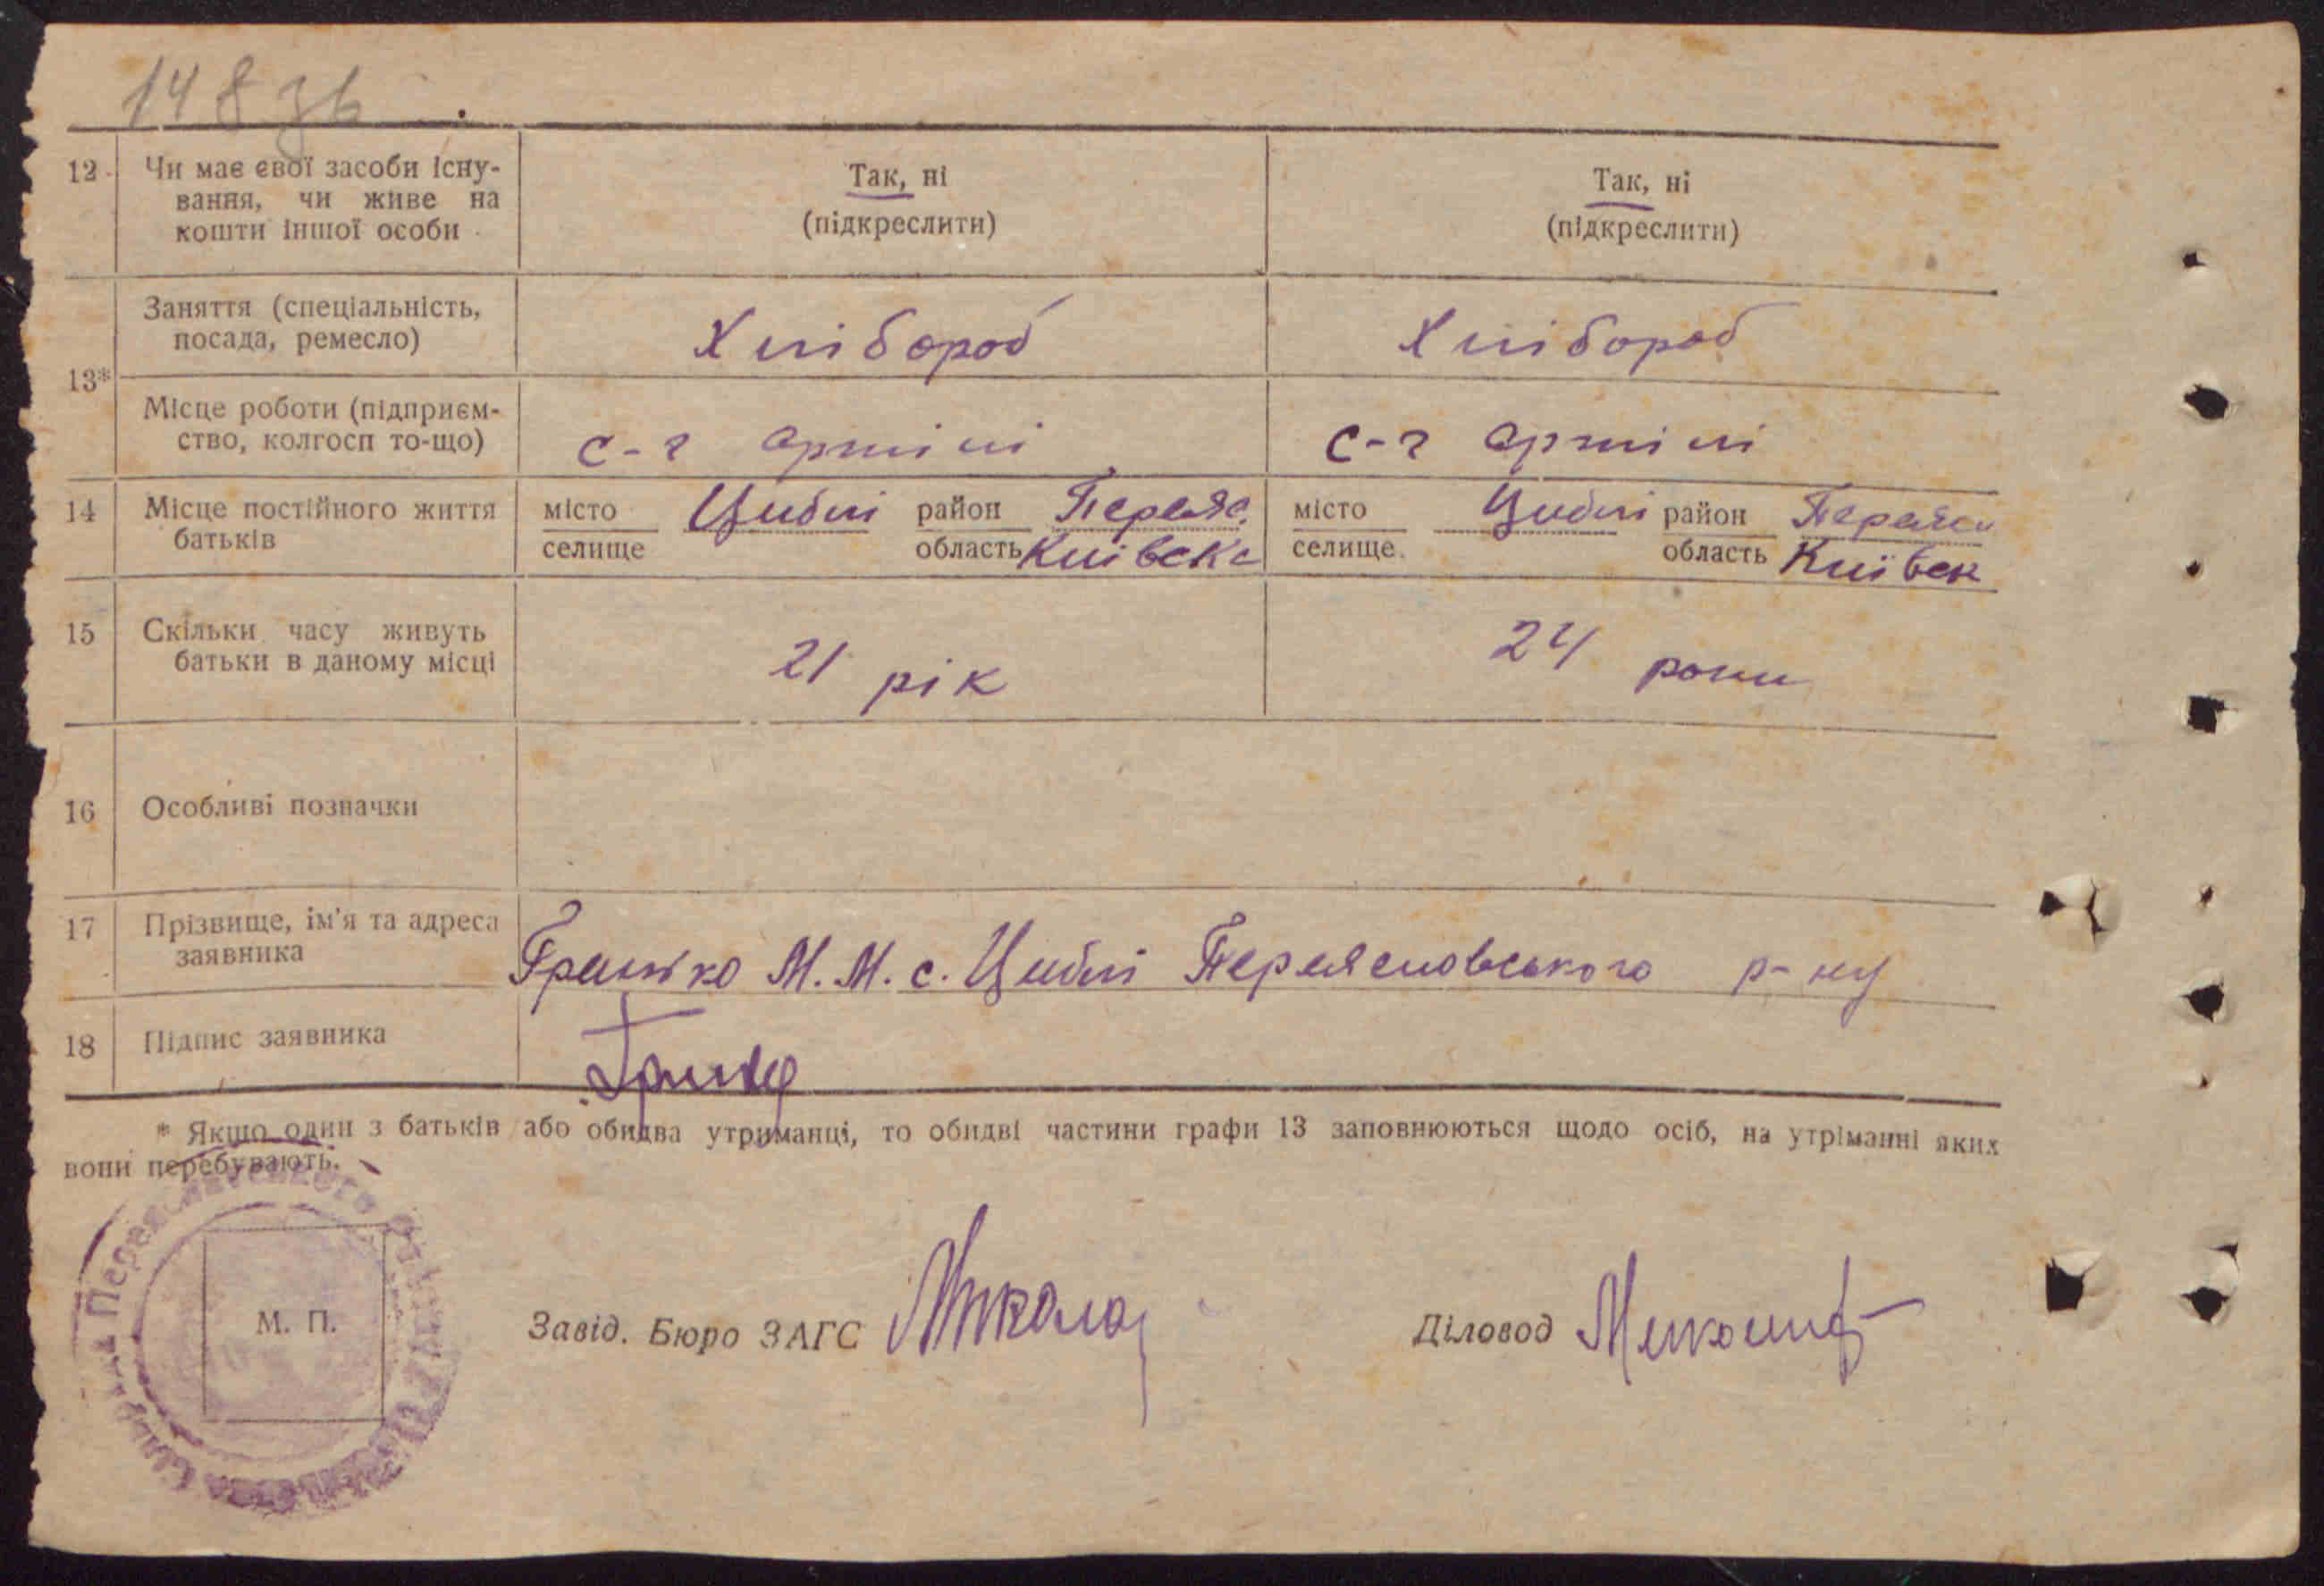 148 зв
12 Чи має свої засоби існу-
вання, чи живе на
кошти іншої особи
Так, ні
(підкреслити)
Так, ні
(підкреслити)
13*
Заняття (спеціальність,
посада, ремесло)
Хлібороб
Хлібороб
Місце роботи (підприєм-
ство, колгосп то-що)
с-г артілі
с-г артілі
14 Місце постійного життя
батьків
місто
селище
Циблі
район Переяс.
область Київськ
місто
селище
Циблі
район Переясл
область Київськ
15 Скільки часу живуть
батьки в даному місці
21 рік
24 роки
16 Особливі позначки
17 Прізвище, ім'я та адреса
заявника
М. М. с. Циблі Переяславського р-ну
18 Підпис заявника
* Якщо один з батьків або обидва утриманці, то обидві частини графи 13 заповнюються щодо осіб, на утріманні яких
вони перебувають.
М. П.
Завід. Бюро ЗАГС
Діловод